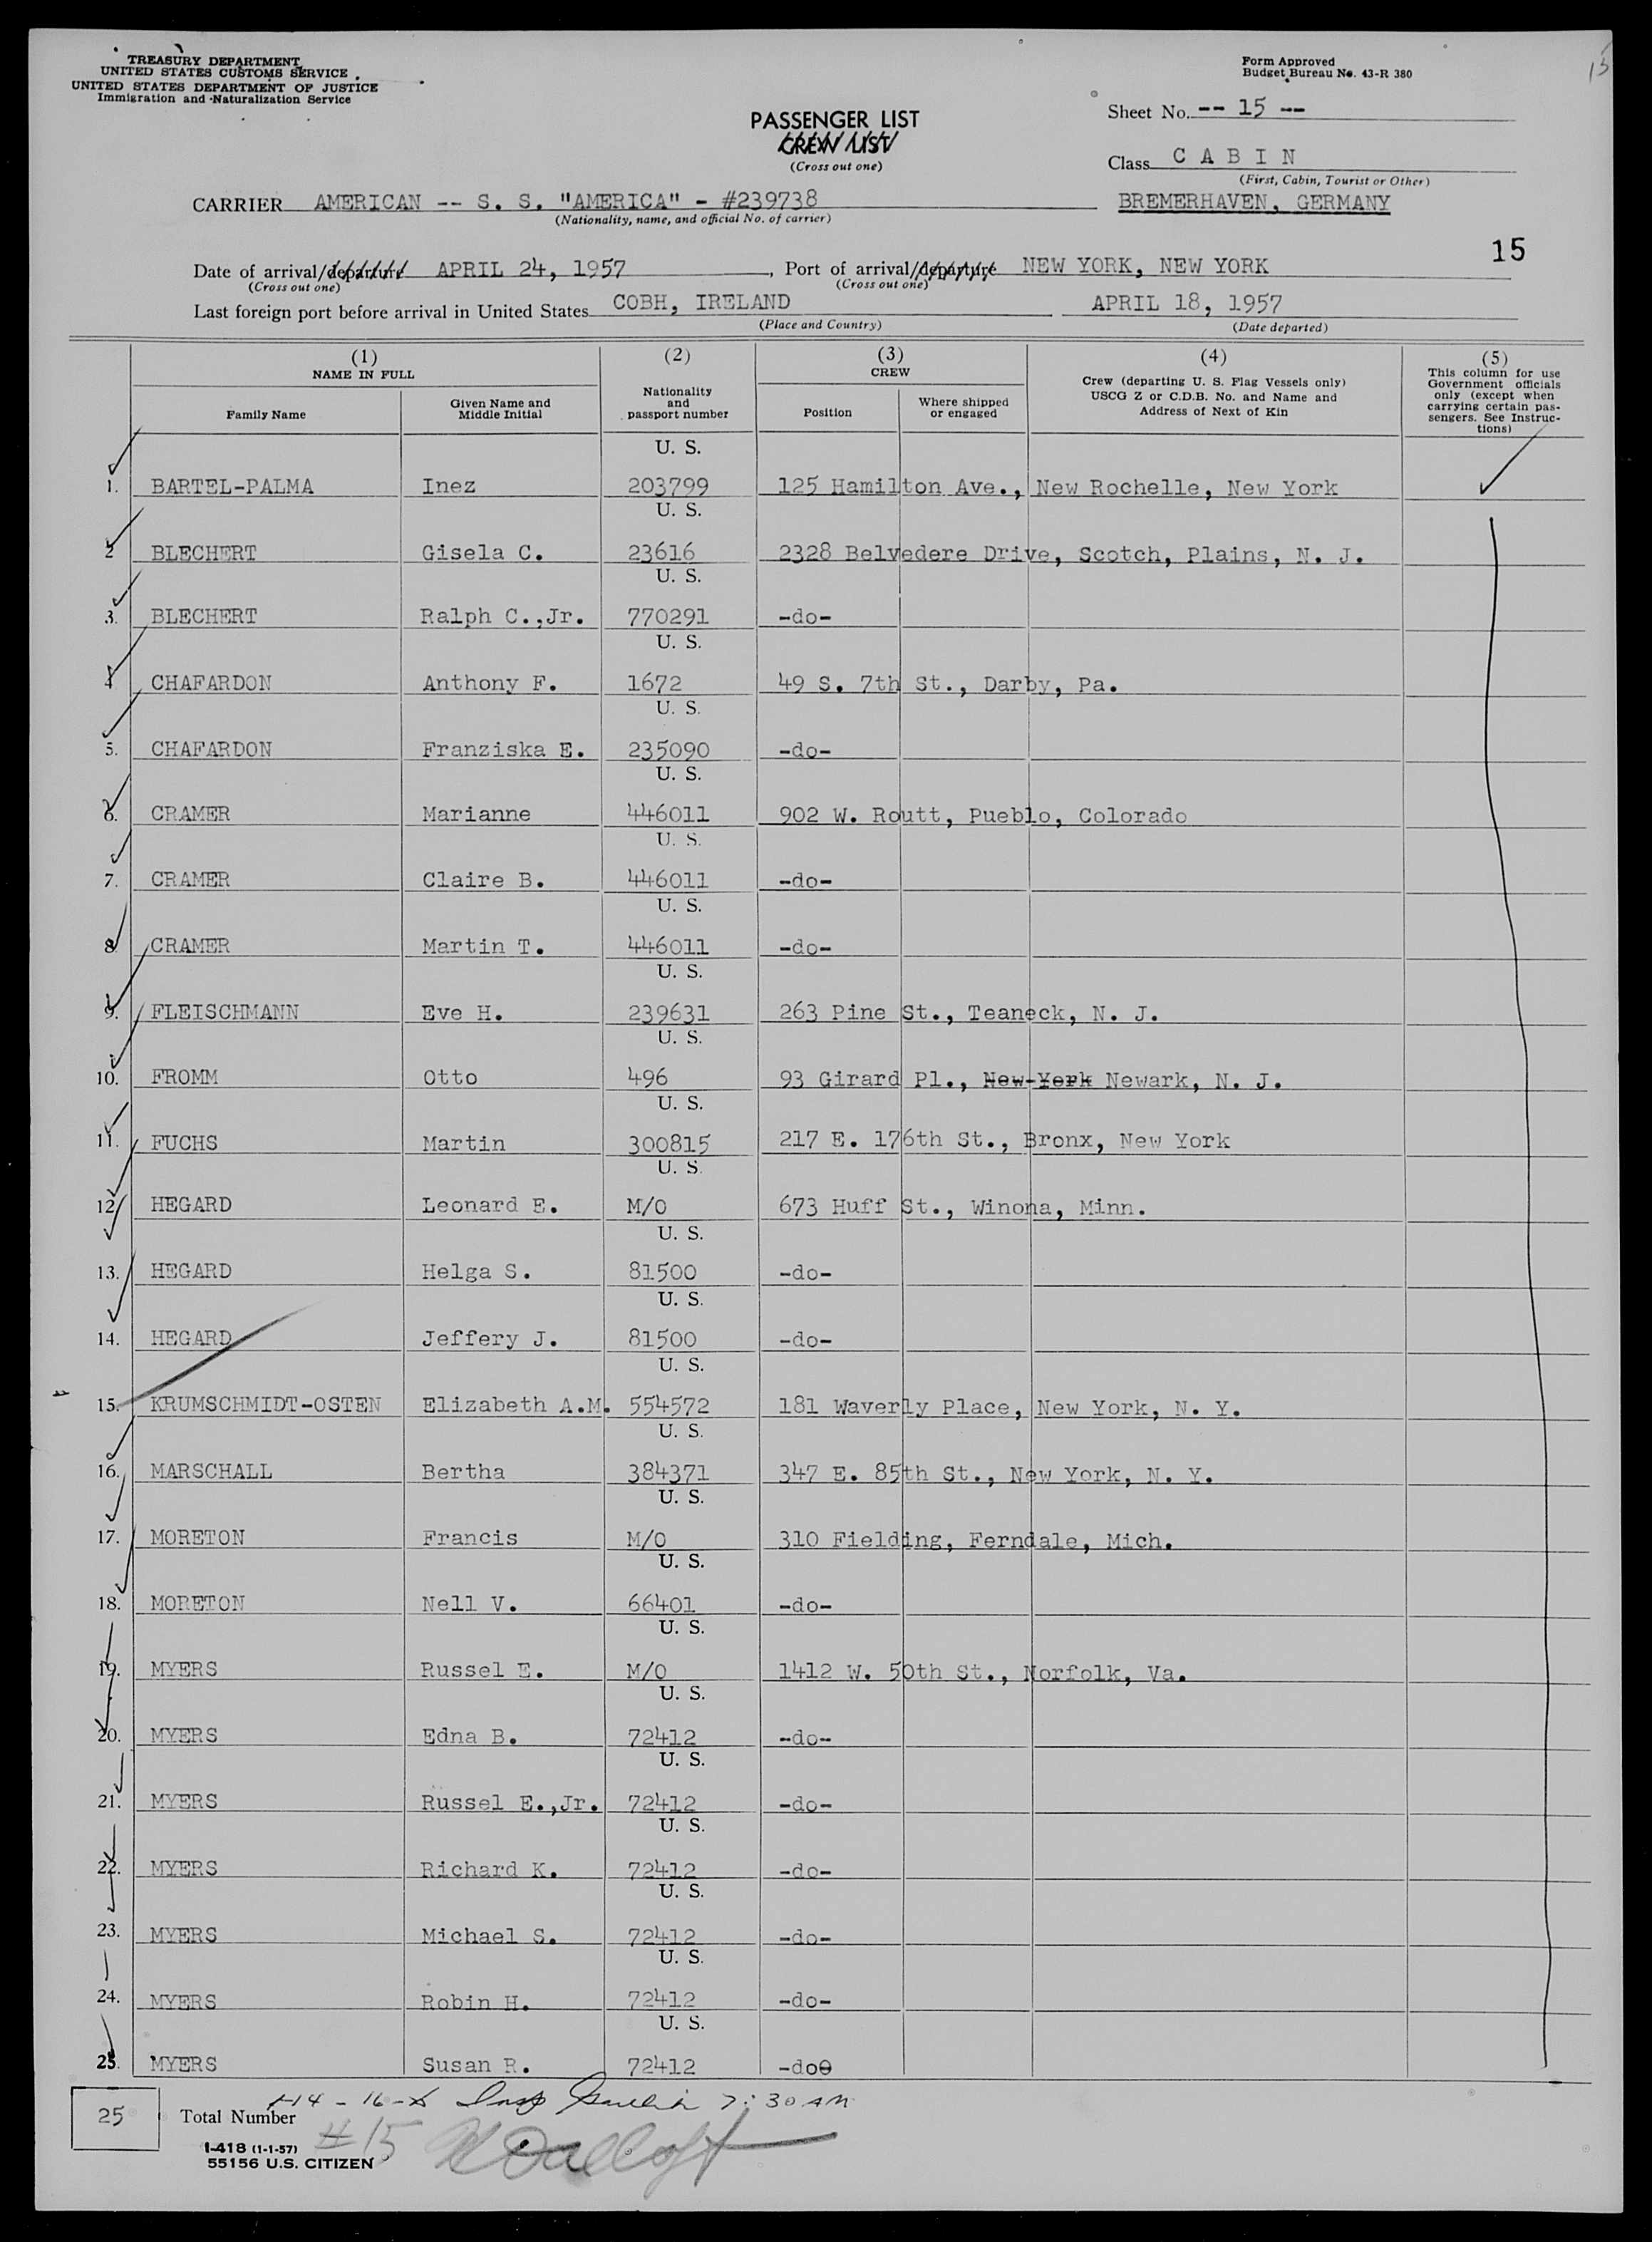 TREASURY DEPARTMENT
UNITED STATES CUSTOMS SERVICE
UNITED STATES DEPARTMENT OF JUSTICE
Immigration and Naturalization Service
Form Approved
Budget Bureau No. 43-R 380
15
PASSENGER LIST
CREW LIST
(Cross out one)
Sheet No. -- 15 --
Class C A B I N
(First, Cabin, Tourist or Other)
CARRIER AMERICAN -- S. S. "AMERICA" - #239738
(Nationality, name, and official No. of carrier)
BREMERHAVEN, GERMANY
15
Date of arrival/departure APRIL 24, 1957, Port of arrival/departure NEW YORK, NEW YORK
(Cross out one) (Cross out one)
Last foreign port before arrival in United States COBH, IRELAND APRIL 18, 1957
(Place and Country) (Date departed)
(1) NAME IN FULL
Family Name
Given Name and Middle Initial
(2)
Nationality and passport number
(3) CREW
Position
Where shipped or engaged
(4)
Crew (departing U. S. Flag Vessels only) USCG Z or C.D.B. No. and Name and Address of Next of Kin
(5)
This column for use Government officials only (except when carrying certain passengers. See Instructions)
U. S.
1. BARTEL-PALMA Inez 203799 125 Hamilton Ave., New Rochelle, New York
U. S.
2 BLECHERT Gisela C. 23616 2328 Belvedere Drive, Scotch, Plains, N. J.
U. S.
3. BLECHERT Ralph C.,Jr. 770291 -do-
U. S.
4 CHAFARDON Anthony F. 1672 49 S. 7th St., Darby, Pa.
U. S.
5. CHAFARDON Franziska E. 235090 -do-
U. S.
6. CRAMER Marianne 446011 902 W. Routt, Pueblo, Colorado
U. S.
7. CRAMER Claire B. 446011 -do-
U. S.
8 CRAMER Martin T. 446011 -do-
U. S.
9. FLEISCHMANN Eve H. 239631 263 Pine St., Teaneck, N. J.
U. S.
10. FROMM Otto 496 93 Girard Pl., New York Newark, N. J.
U. S.
11. FUCHS Martin 300815 217 E. 176th St., Bronx, New York
U. S.
12 HEGARD Leonard E. M/O 673 Huff St., Winona, Minn.
U. S.
13. HEGARD Helga S. 81500 -do-
U. S.
14. HEGARD Jeffery J. 81500 -do-
U. S.
15. KRUMSCHMIDT-OSTEN Elizabeth A.M. 554572 181 Waverly Place, New York, N. Y.
U. S.
16. MARSCHALL Bertha 384371 347 E. 85th St., New York, N. Y.
U. S.
17. MORETON Francis M/O 310 Fielding, Ferndale, Mich.
U. S.
18. MORETON Nell V. 66401 -do-
U. S.
19. MYERS Russel E. M/O 1412 W. 50th St., Norfolk, Va.
U. S.
20. MYERS Edna B. 72412 -do-
U. S.
21. MYERS Russel E.,Jr. 72412 -do-
U. S.
22. MYERS Richard K. 72412 -do-
U. S.
23. MYERS Michael S. 72412 -do-
U. S.
24. MYERS Robin H. 72412 -do-
U. S.
25. MYERS Susan R. 72412 -do-
7:30 AM
25 Total Number
#15
I-418 (1-1-57)
55156 U.S. CITIZEN